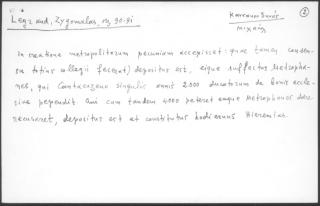 Legrand, Zygomalas, 90-91
②
Καντακουζηνός
Μιχαήλ
in creatione metropolitarum pecuniam accepisset: quae tamen consen-
su totius collegii fecerat) depositus est, eique suffectus Metropha-
nes, qui Cantacuzeno singulis annis 2.000 ducatorum de bonis eccle-
siae pependit. Qui cum tandem 4000 peteret eaque Metrophanes dare
recusaret, depositus est et constitutus hodiernus Hieremias.